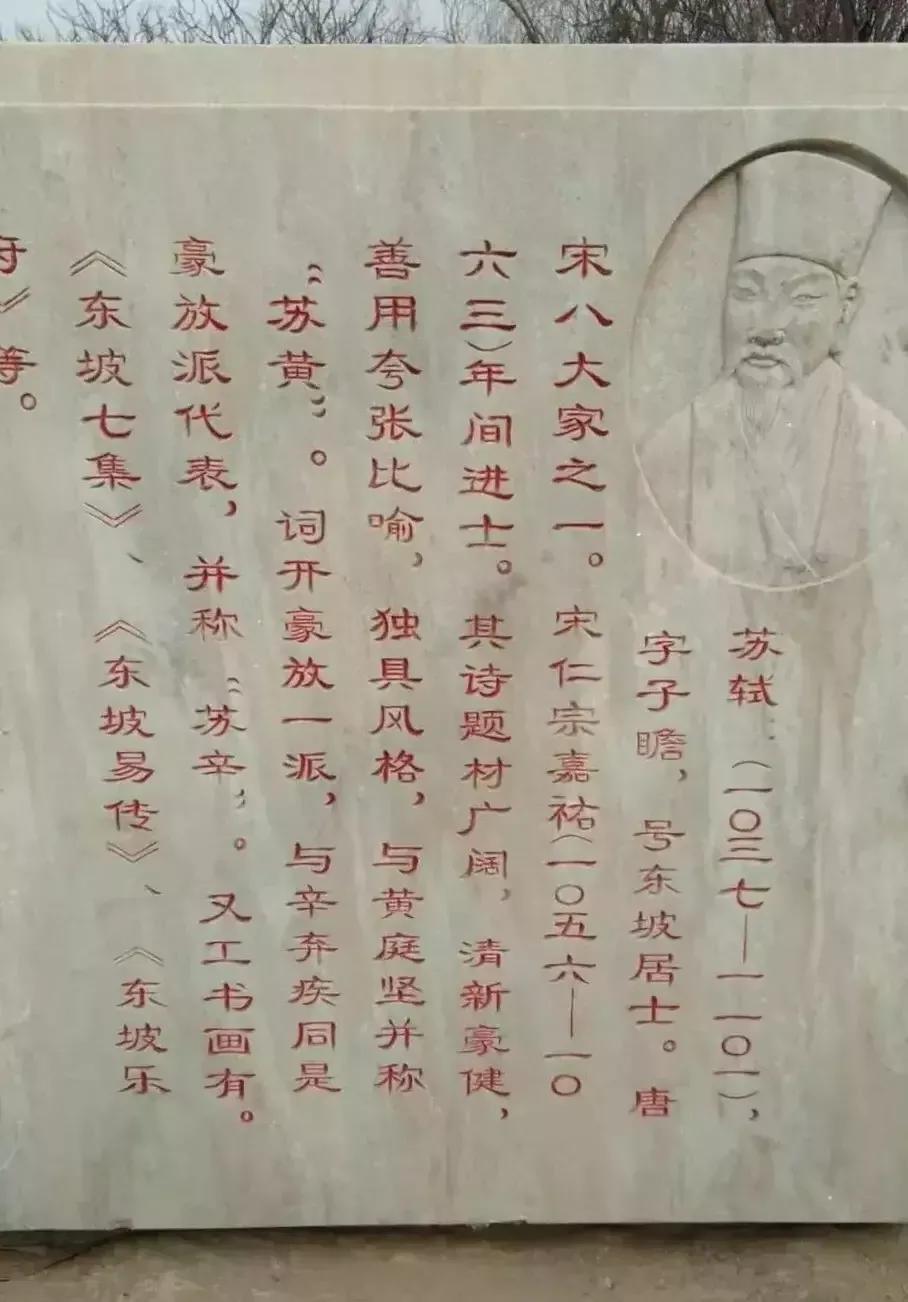 苏轼(一〇三七—一一〇一),
字子瞻,号东坡居士。唐
宋八大家之一。宋仁宗嘉祐(一〇五六—一〇
六三)年间进士。其诗题材广阔,清新豪健,
善用夸张比喻,独具风格,与黄庭坚并称
“苏黄”。词开豪放一派,与辛弃疾同是
豪放派代表,并称“苏辛”。又工书画有。
《东坡七集》、《东坡易传》、《东坡乐
府》等。